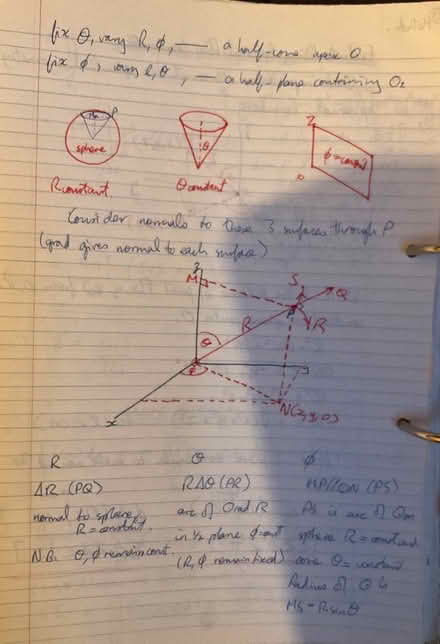 fix θ, vary R, φ, — a half-cone apex O
fix φ, vary R, θ, — a half-plane containing Oz
P
sphere
θ
Z
φ=const
O
R constant.
θ constant.
Consider normals to these 3 surfaces through P
(grad gives normal to each surface)
Z
M
S
Q
R
R
θ
φ
x
N(x,y,0)
R
θ
φ
ΔR (PQ)
RΔθ (PR)
MP//ON (PS)
normal to sphere,
R = constant.
N.B. θ, φ remain const.
arc of O rad R
in ½ plane φ=
(R, φ remain fixed)
PS is arc of
sphere R = constant
cone θ = constant
Radius of is
= R sin θ